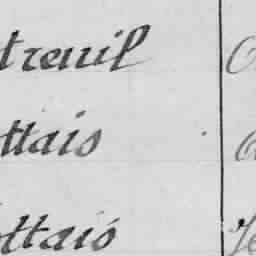 treuil
ttais
ottais